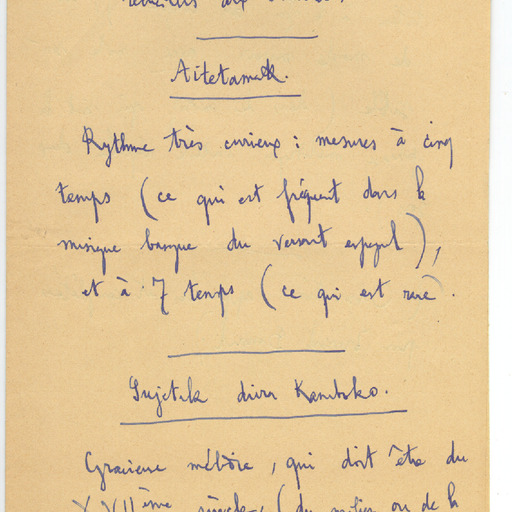 recueillis aux
Aitetamak.
Rythme très curieux : mesures à cinq
temps (ce qui est fréquent dans la
musique basque du versant espagnol),
et à 7 temps (ce qui est rare.
Sujetik dira Kanboko.
Gracieuse mélodie, qui doit être du
XVIIème siècle, (du milieu ou de la